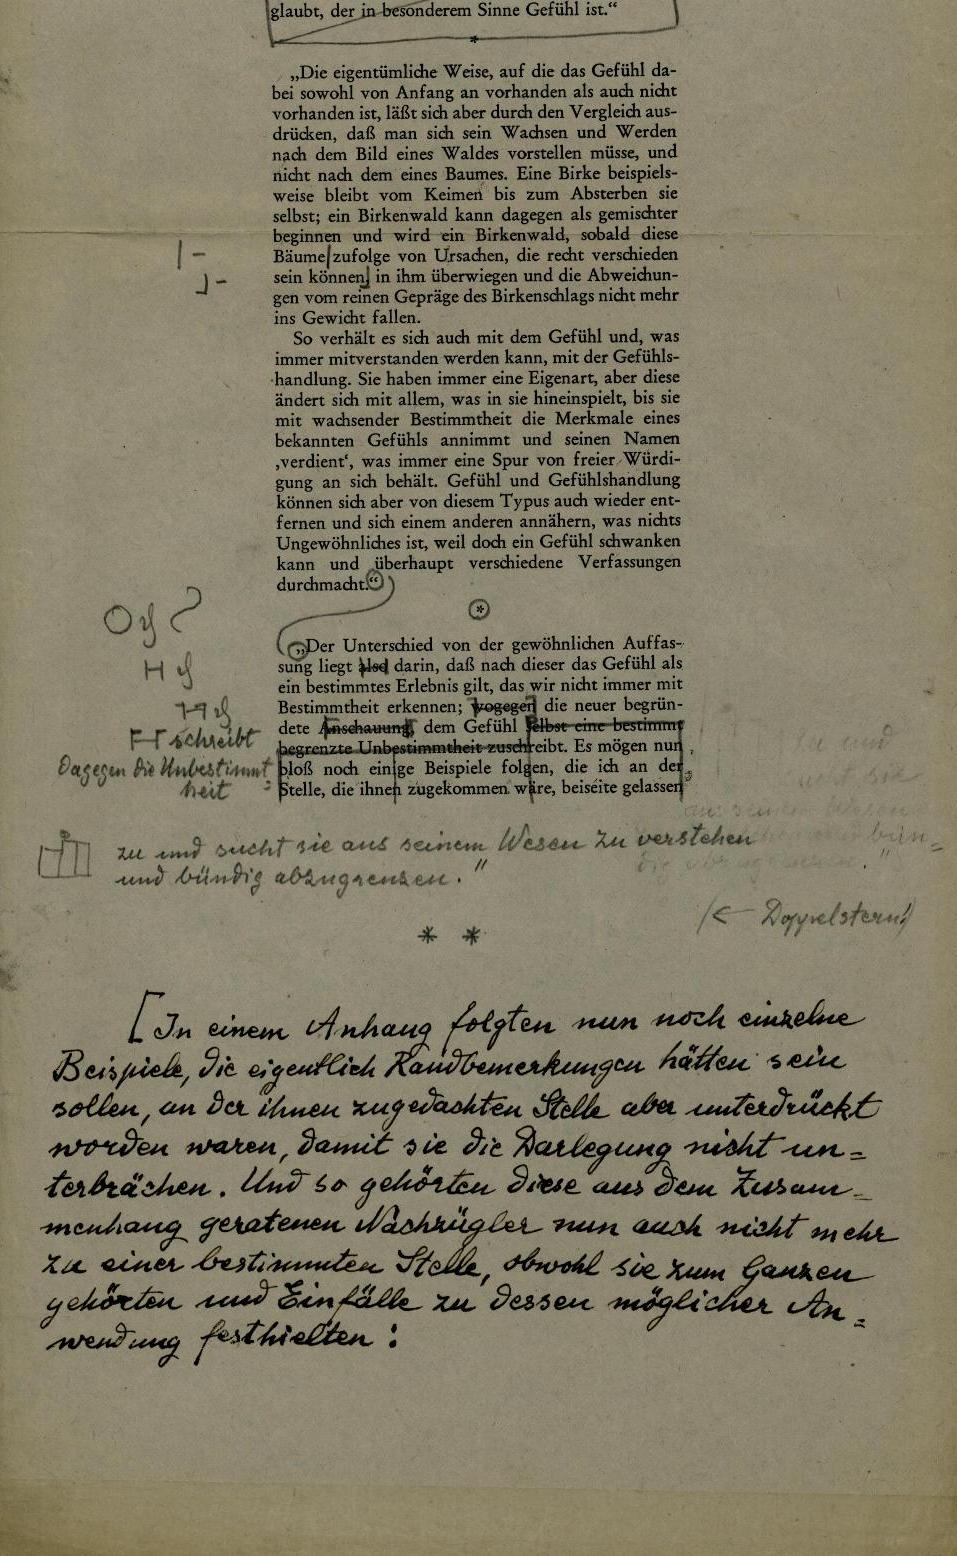 glaubt, der in besonderem Sinne Gefühl ist.“
*
„Die eigentümliche Weise, auf die das Gefühl da-
bei sowohl von Anfang an vorhanden als auch nicht
vorhanden ist, läßt sich aber durch den Vergleich aus-
drücken, daß man sich sein Wachsen und Werden
nach dem Bild eines Waldes vorstellen müsse, und
nicht nach dem eines Baumes. Eine Birke beispiels-
weise bleibt vom Keimen bis zum Absterben sie
selbst; ein Birkenwald kann dagegen als gemischter
beginnen und wird ein Birkenwald, sobald diese
Bäume zufolge von Ursachen, die recht verschieden
sein können, in ihm überwiegen und die Abweichun-
gen vom reinen Gepräge des Birkenschlags nicht mehr
ins Gewicht fallen.
So verhält es sich auch mit dem Gefühl und, was
immer mitverstanden werden kann, mit der Gefühls-
handlung. Sie haben immer eine Eigenart, aber diese
ändert sich mit allem, was in sie hineinspielt, bis sie
mit wachsender Bestimmtheit die Merkmale eines
bekannten Gefühls annimmt und seinen Namen
‚verdient‘, was immer eine Spur von freier Würdi-
gung an sich behält. Gefühl und Gefühlshandlung
können sich aber von diesem Typus auch wieder ent-
fernen und sich einem anderen annähern, was nichts
Ungewöhnliches ist, weil doch ein Gefühl schwanken
kann und überhaupt verschiedene Verfassungen
durchmacht.“
*
„Der Unterschied von der gewöhnlichen Auffas-
sung liegt also darin, daß nach dieser das Gefühl als
ein bestimmtes Erlebnis gilt, das wir nicht immer mit
Bestimmtheit erkennen; wogegen die neuer begrün-
dete Anschauung dem Gefühl selbst eine bestimmt
begrenzte Unbestimmtheit zuschreibt. Es mögen nun
bloß noch einige Beispiele folgen, die ich an der
Stelle, die ihnen zugekommen wäre, beiseite gelassen
schreibt
dagegen die Unbestimmt
heit
zu und sucht sie aus seinem Wesen zu verstehen
und bündig abzugrenzen.“
← Doppelstern!
* *
[In einem Anhang folgten nun noch einzelne
Beispiele, die eigentlich Randbemerkungen hätten sein
sollen, an der ihnen zugedachten Stelle aber unterdrückt
worden waren, damit sie die Darlegung nicht un=
terbrächen. Und so gehörten diese aus dem Zusam=
menhang geratenen Nachzügler nun auch nicht mehr
zu einer bestimmten Stelle, obwohl sie zum Ganzen
gehörten und Einfälle zu dessen möglicher An=
wendung festhielten: